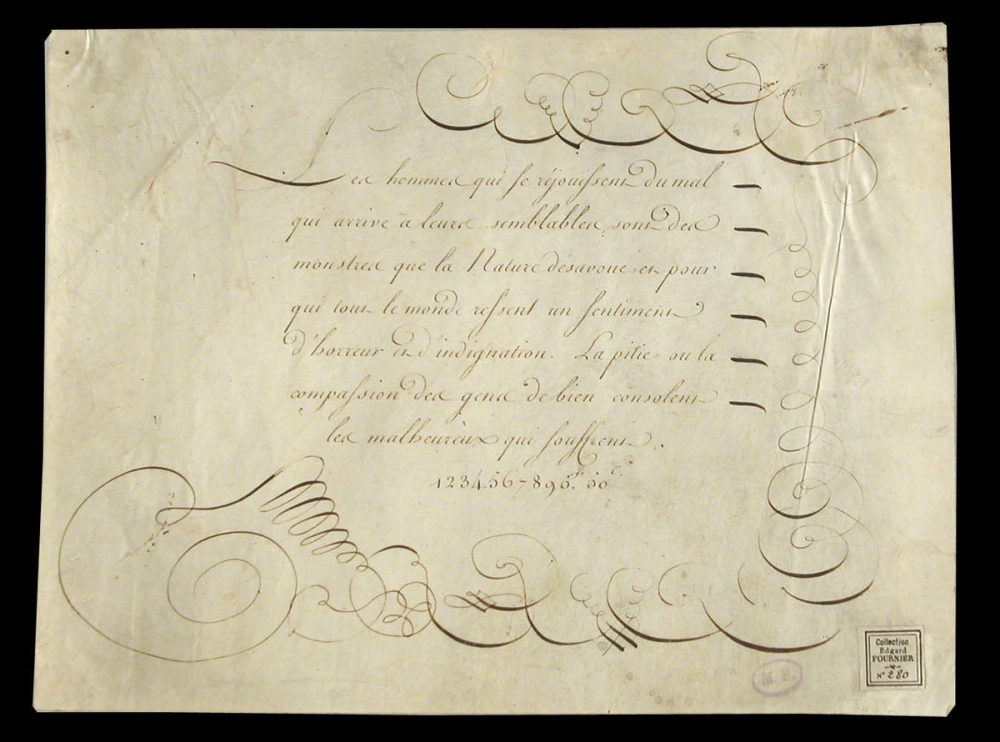 Les hommes qui se réjouissent du mal
qui arrive à leurs semblables, sont des
monstres que la Nature désavoue et pour
qui tout le monde ressent un sentiment
d'horreur et d'indignation. La pitié ou la
compassion des gens de bien consolent
les malheureux qui souffrent.
Collection
Edgard
FOURNIER
N° 280